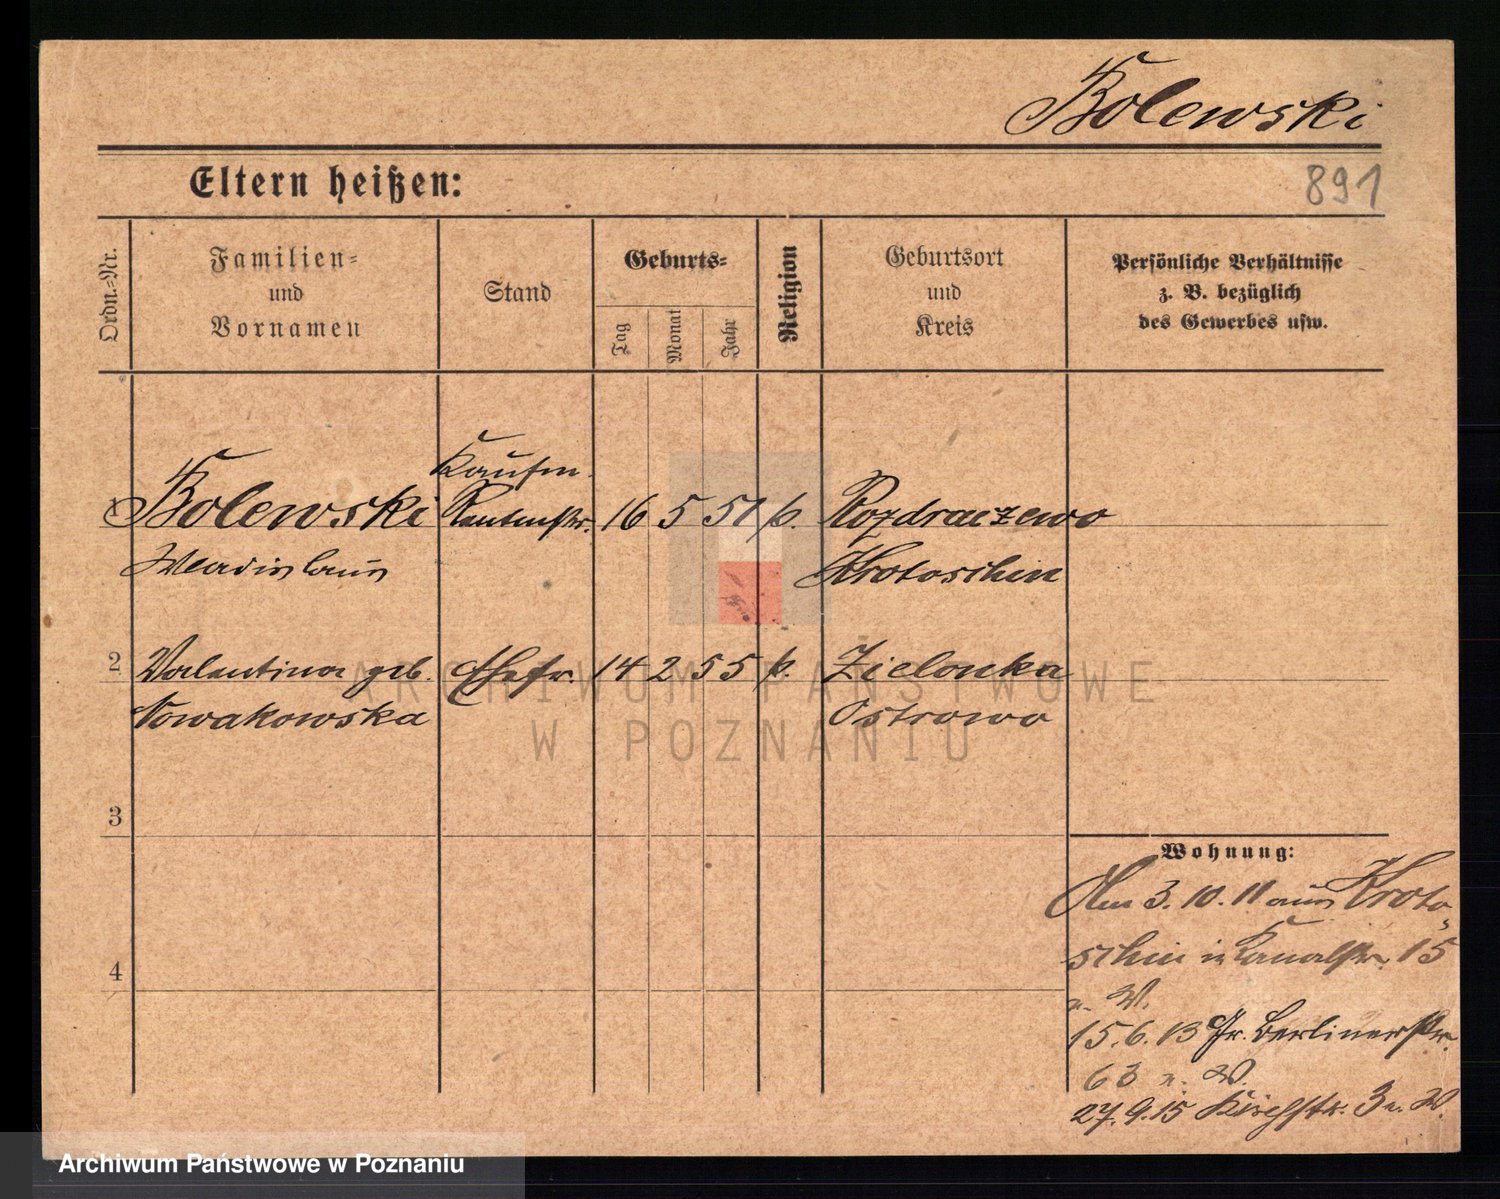 Bolewski
Eltern heißen:
891
Ordn.-Nr.
Familien-
und
Vornamen
Stand
Geburts-
Tag
Monat
Jahr
Religion
Geburtsort
und
Kreis
Persönliche Verhältnisse
z. B. bezüglich
des Gewerbes usw.
Kaufm.
1 Bolewski 16 5 51 k. Rozdraczewo
Wladislaus Krotoschin
2 Valentina geb. Ehefr. 14 2 55 k. Zielonka
Nowakowska Ostrowo
3
Wohnung:
Am 3.10.11 aus Kroto-
schin in Kanalstr. 15
4
n. W.
15.6.13 Gr. Berlinerstr.
63 n. W.
27.9.15 Kirchstr. 3 n. W.
ARCHIWUM PAŃSTWOWE
W POZNANIU
Archiwum Państwowe w Poznaniu